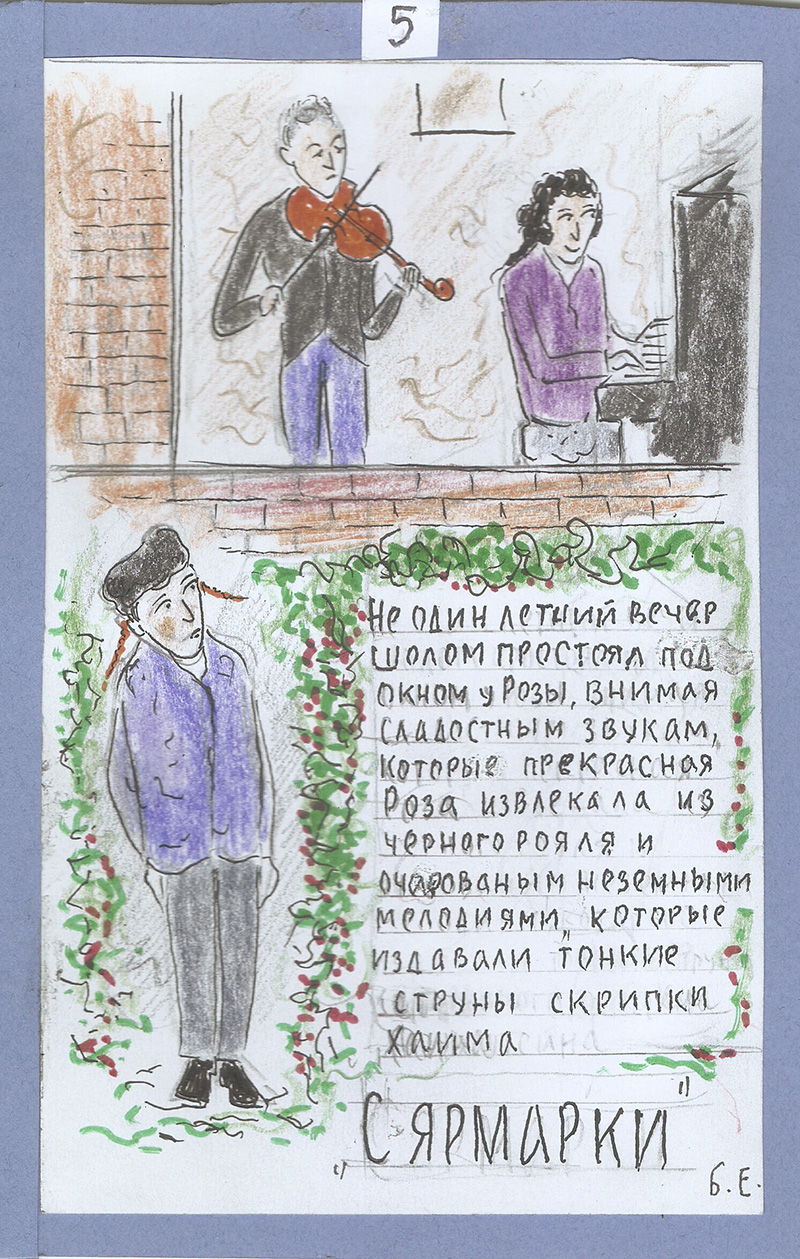 5
Не один летний вечер
Шолом простоял под
окном у Розы, внимая
сладостным звукам,
которые прекрасная
Роза извлекала из
чёрного рояля и
очарованым неземными
мелодиями, которые
издавали тонкие
струны скрипки
Хаима
"С ЯРМАРКИ"
Б.Е.